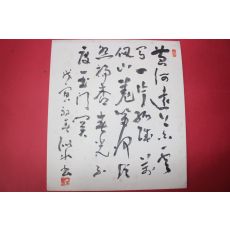 黄河遠上白雲
间一片孤城萬
仞山羌笛何須
怨楊柳春光不
度玉门関
戊寅 书